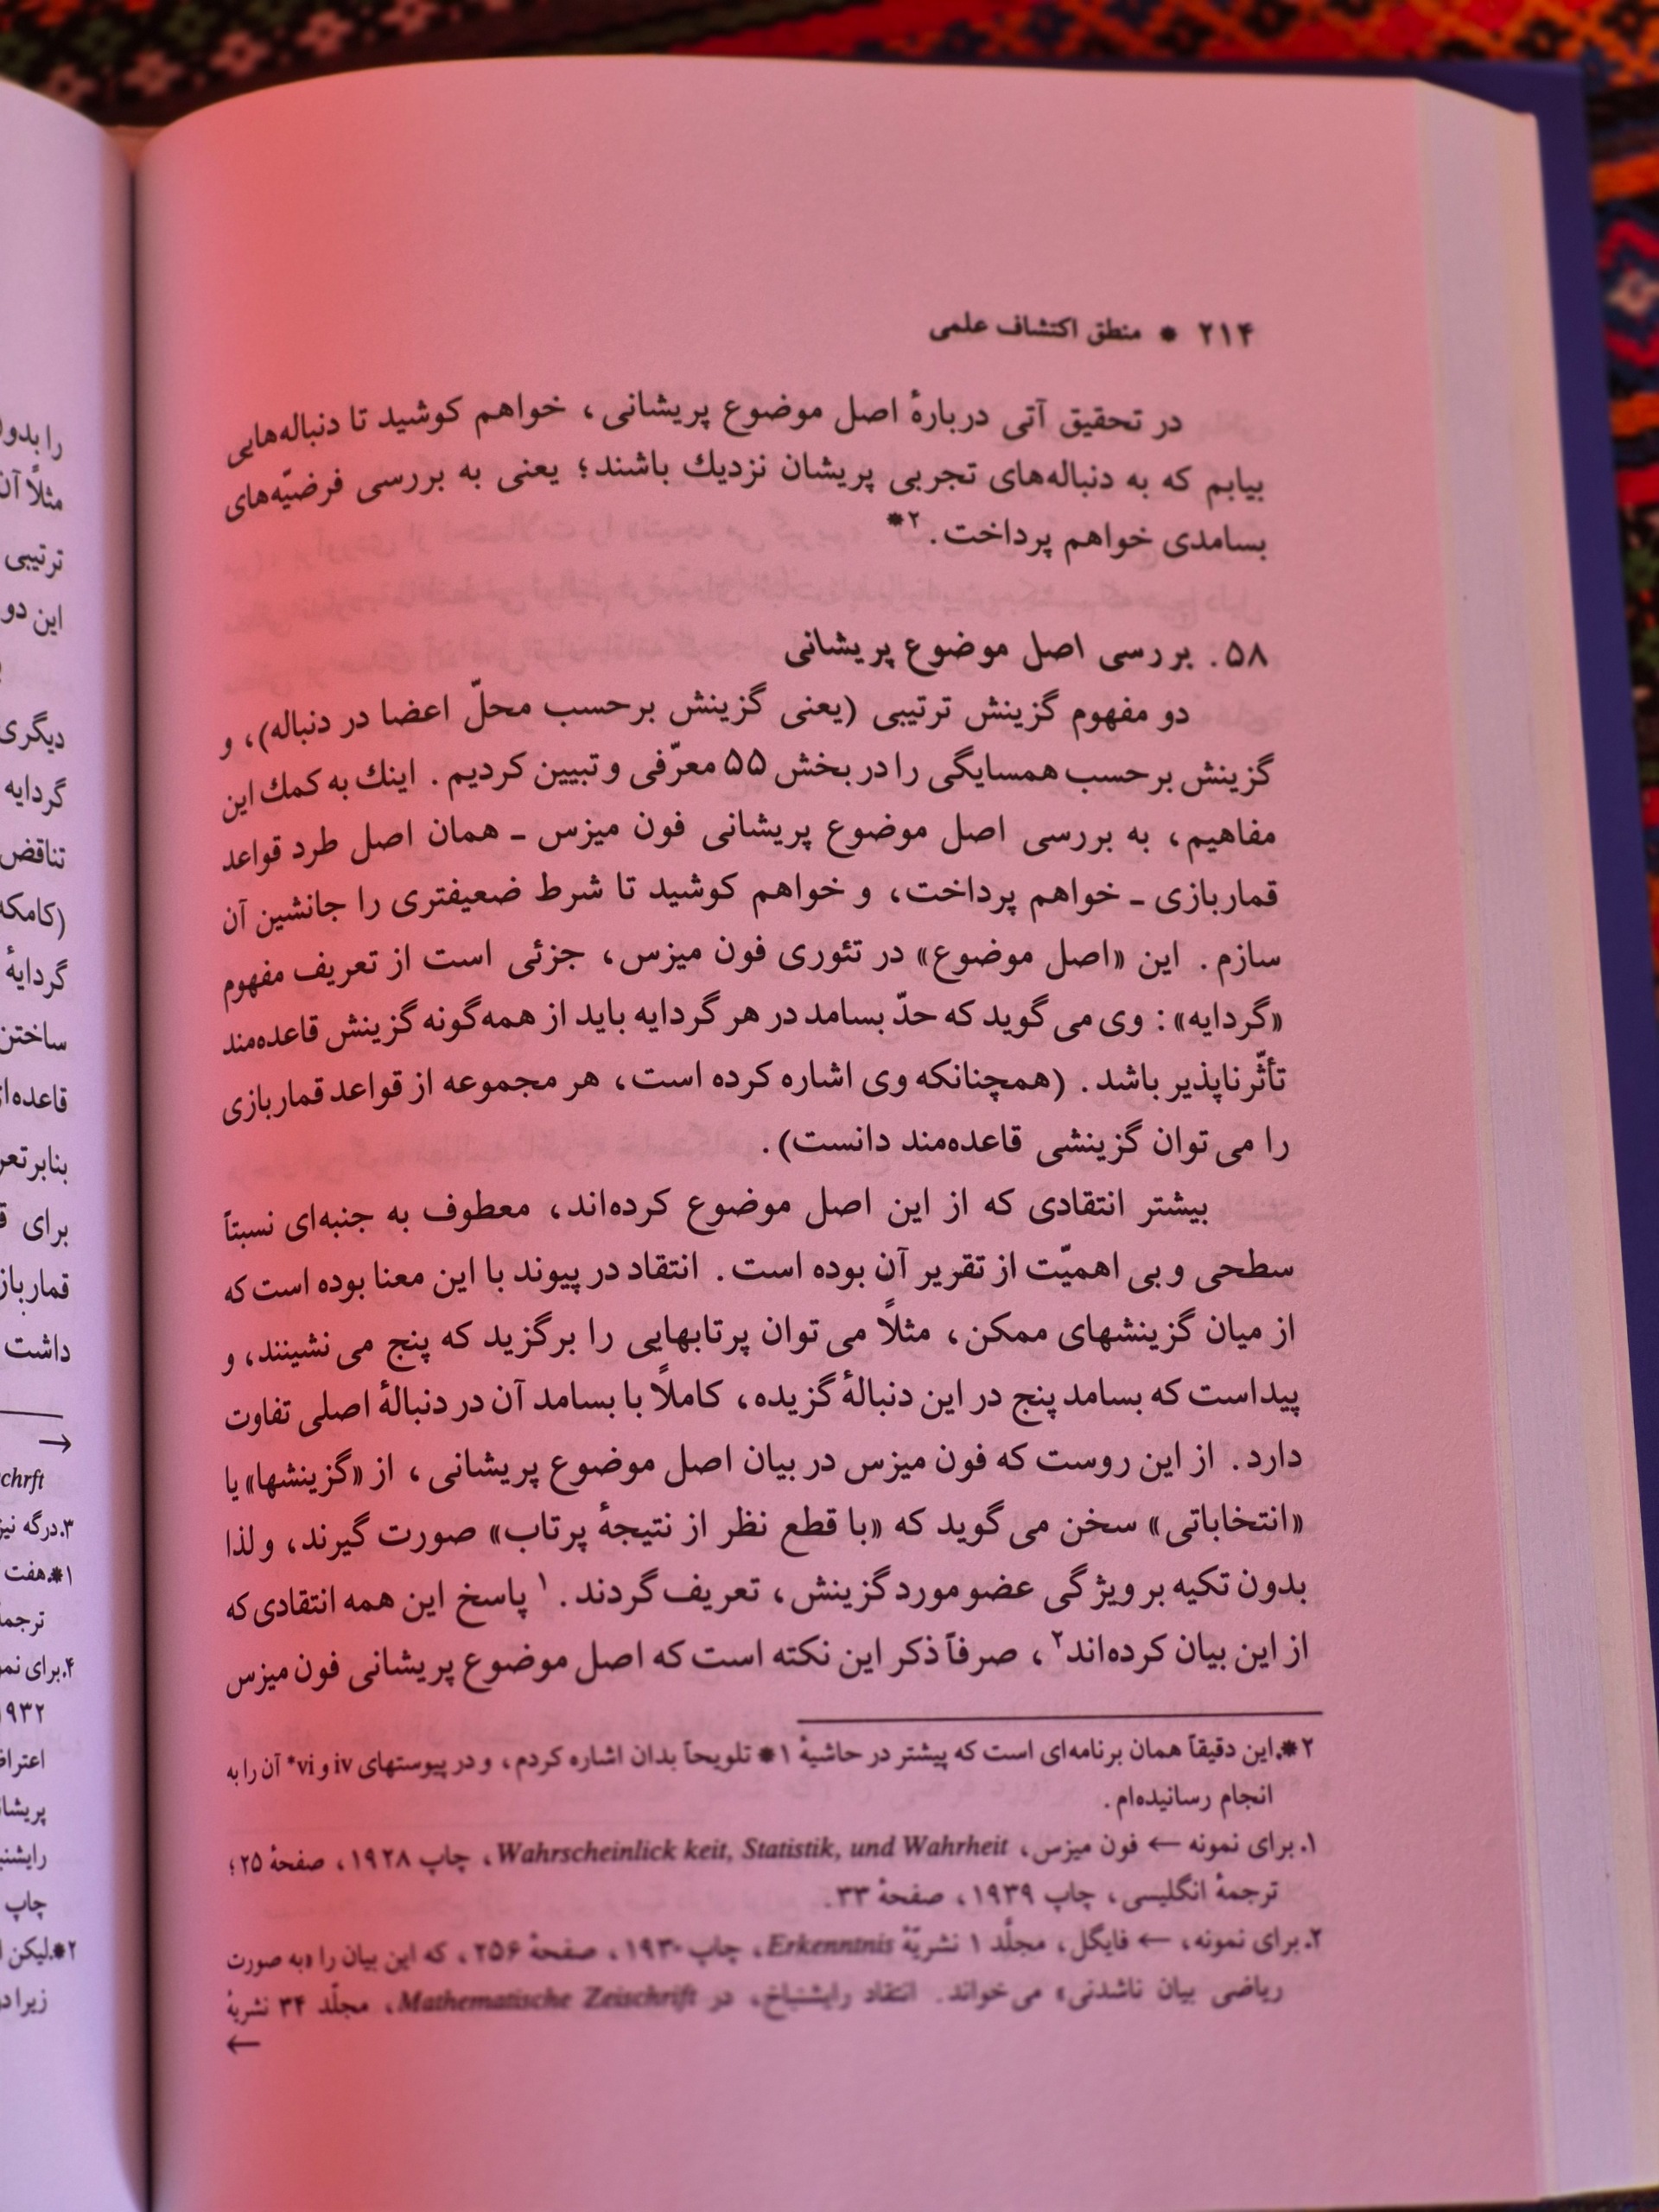 ۲۱۴ * منطق اکتشاف علمی
در تحقیق آتی دربارهٔ اصل موضوع پریشانی، خواهم کوشید تا دنباله‌هایی
بیابم که به دنباله‌های تجربی پریشان نزدیك باشند؛ یعنی به بررسی فرضیّه‌های
بسامدی خواهم پرداخت.*۲
۵۸. بررسی اصل موضوع پریشانی
دو مفهوم گزینش ترتیبی (یعنی گزینش برحسب محلّ اعضا در دنباله)، و
گزینش برحسب همسایگی را در بخش ۵۵ معرّفی و تبیین کردیم. اینك به کمك این
مفاهیم، به بررسی اصل موضوع پریشانی فون میزس ـ همان اصل طرد قواعد
قماربازی ـ خواهم پرداخت، و خواهم کوشید تا شرط ضعیفتری را جانشین آن
سازم. این «اصل موضوع» در تئوری فون میزس، جزئی است از تعریف مفهوم
«گردایه»: وی می گوید که حدّ بسامد در هر گردایه باید از همه گونه گزینش قاعده‌مند
تأثّرناپذیر باشد. (همچنانکه وی اشاره کرده است، هر مجموعه از قواعد قماربازی
را می توان گزینشی قاعده‌مند دانست).
بیشتر انتقادی که از این اصل موضوع کرده‌اند، معطوف به جنبه‌ای نسبتاً
سطحی و بی اهمیّت از تقریر آن بوده است. انتقاد در پیوند با این معنا بوده است که
از میان گزینشهای ممکن، مثلاً می توان پرتابهایی را برگزید که پنج می نشینند، و
پیداست که بسامد پنج در این دنبالهٔ گزیده، کاملاً با بسامد آن در دنبالهٔ اصلی تفاوت
دارد. از این روست که فون میزس در بیان اصل موضوع پریشانی، از «گزینشها» یا
«انتخاباتی» سخن می گوید که «با قطع نظر از نتیجهٔ پرتاب» صورت گیرند، و لذا
بدون تکیه بر ویژگی عضو مورد گزینش، تعریف گردند.۱ پاسخ این همه انتقادی که
از این بیان کرده‌اند۲، صرفاً ذکر این نکته است که اصل موضوع پریشانی فون میزس
*۲. این دقیقاً همان برنامه‌ای است که پیشتر در حاشیهٔ *۱ تلویحاً بدان اشاره کردم، و در پیوستهای iv و vi* آن را به
انجام رسانیده‌ام.
۱. برای نمونه ← فون میزس، Wahrscheinlick keit, Statistik, und Wahrheit، چاپ ۱۹۲۸، صفحهٔ ۲۵؛
ترجمهٔ انگلیسی، چاپ ۱۹۳۹، صفحهٔ ۳۳.
۲. برای نمونه، ← فایگل، مجلّد ۱ نشریّهٔ Erkenntnis، چاپ ۱۹۳۰، صفحهٔ ۲۵۶، که این بیان را «به صورت
ریاضی بیان ناشدنی» می خواند. انتقاد رایشنباخ، در Mathematische Zeischrift، مجلّد ۳۴ نشریهٔ
←
را بدون
مثلاً آن
ترتیبی
این دو
دیگری
گردایه
تناقض
گردایهٔ
ساختن
بنابر تعر
برای
داشت
→
chrft
۳. درگه نیز
*۱. هفت
۴. برای نمو
۱۹۳۲
چاپ
*۲. لیکن